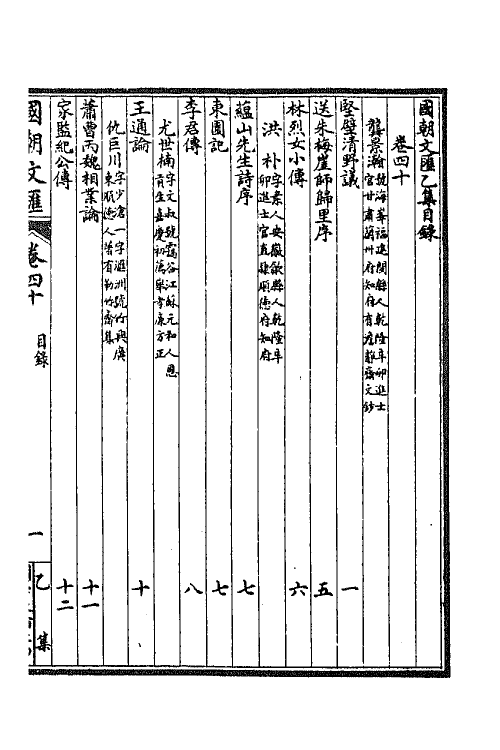 國朝文匯乙集目錄
卷四十
龔景瀚 號海峯福建閩縣人乾隆辛卯進士
官甘肅蘭州府知府有澹靜齋文鈔
堅壁清野議 一
送朱梅崖師歸里序 五
林烈女小傳 六
洪 朴 字素人安徽歙縣人乾隆辛
卯進士官直隸順德府知府
蘊山先生詩序 七
東園記 七
李君傳 八
尤世楠 字文叔號鷺谷江蘇元和人恩
貢生嘉慶初薦舉孝廉方正
王通論 十
仇巨川 字少滄一字滙洲號竹嶼廣
東順德人著有竹齋集
蕭曹丙魏相業論 十一
家監紀公傳 十二
國朝文匯 卷四十 目錄 一 乙集